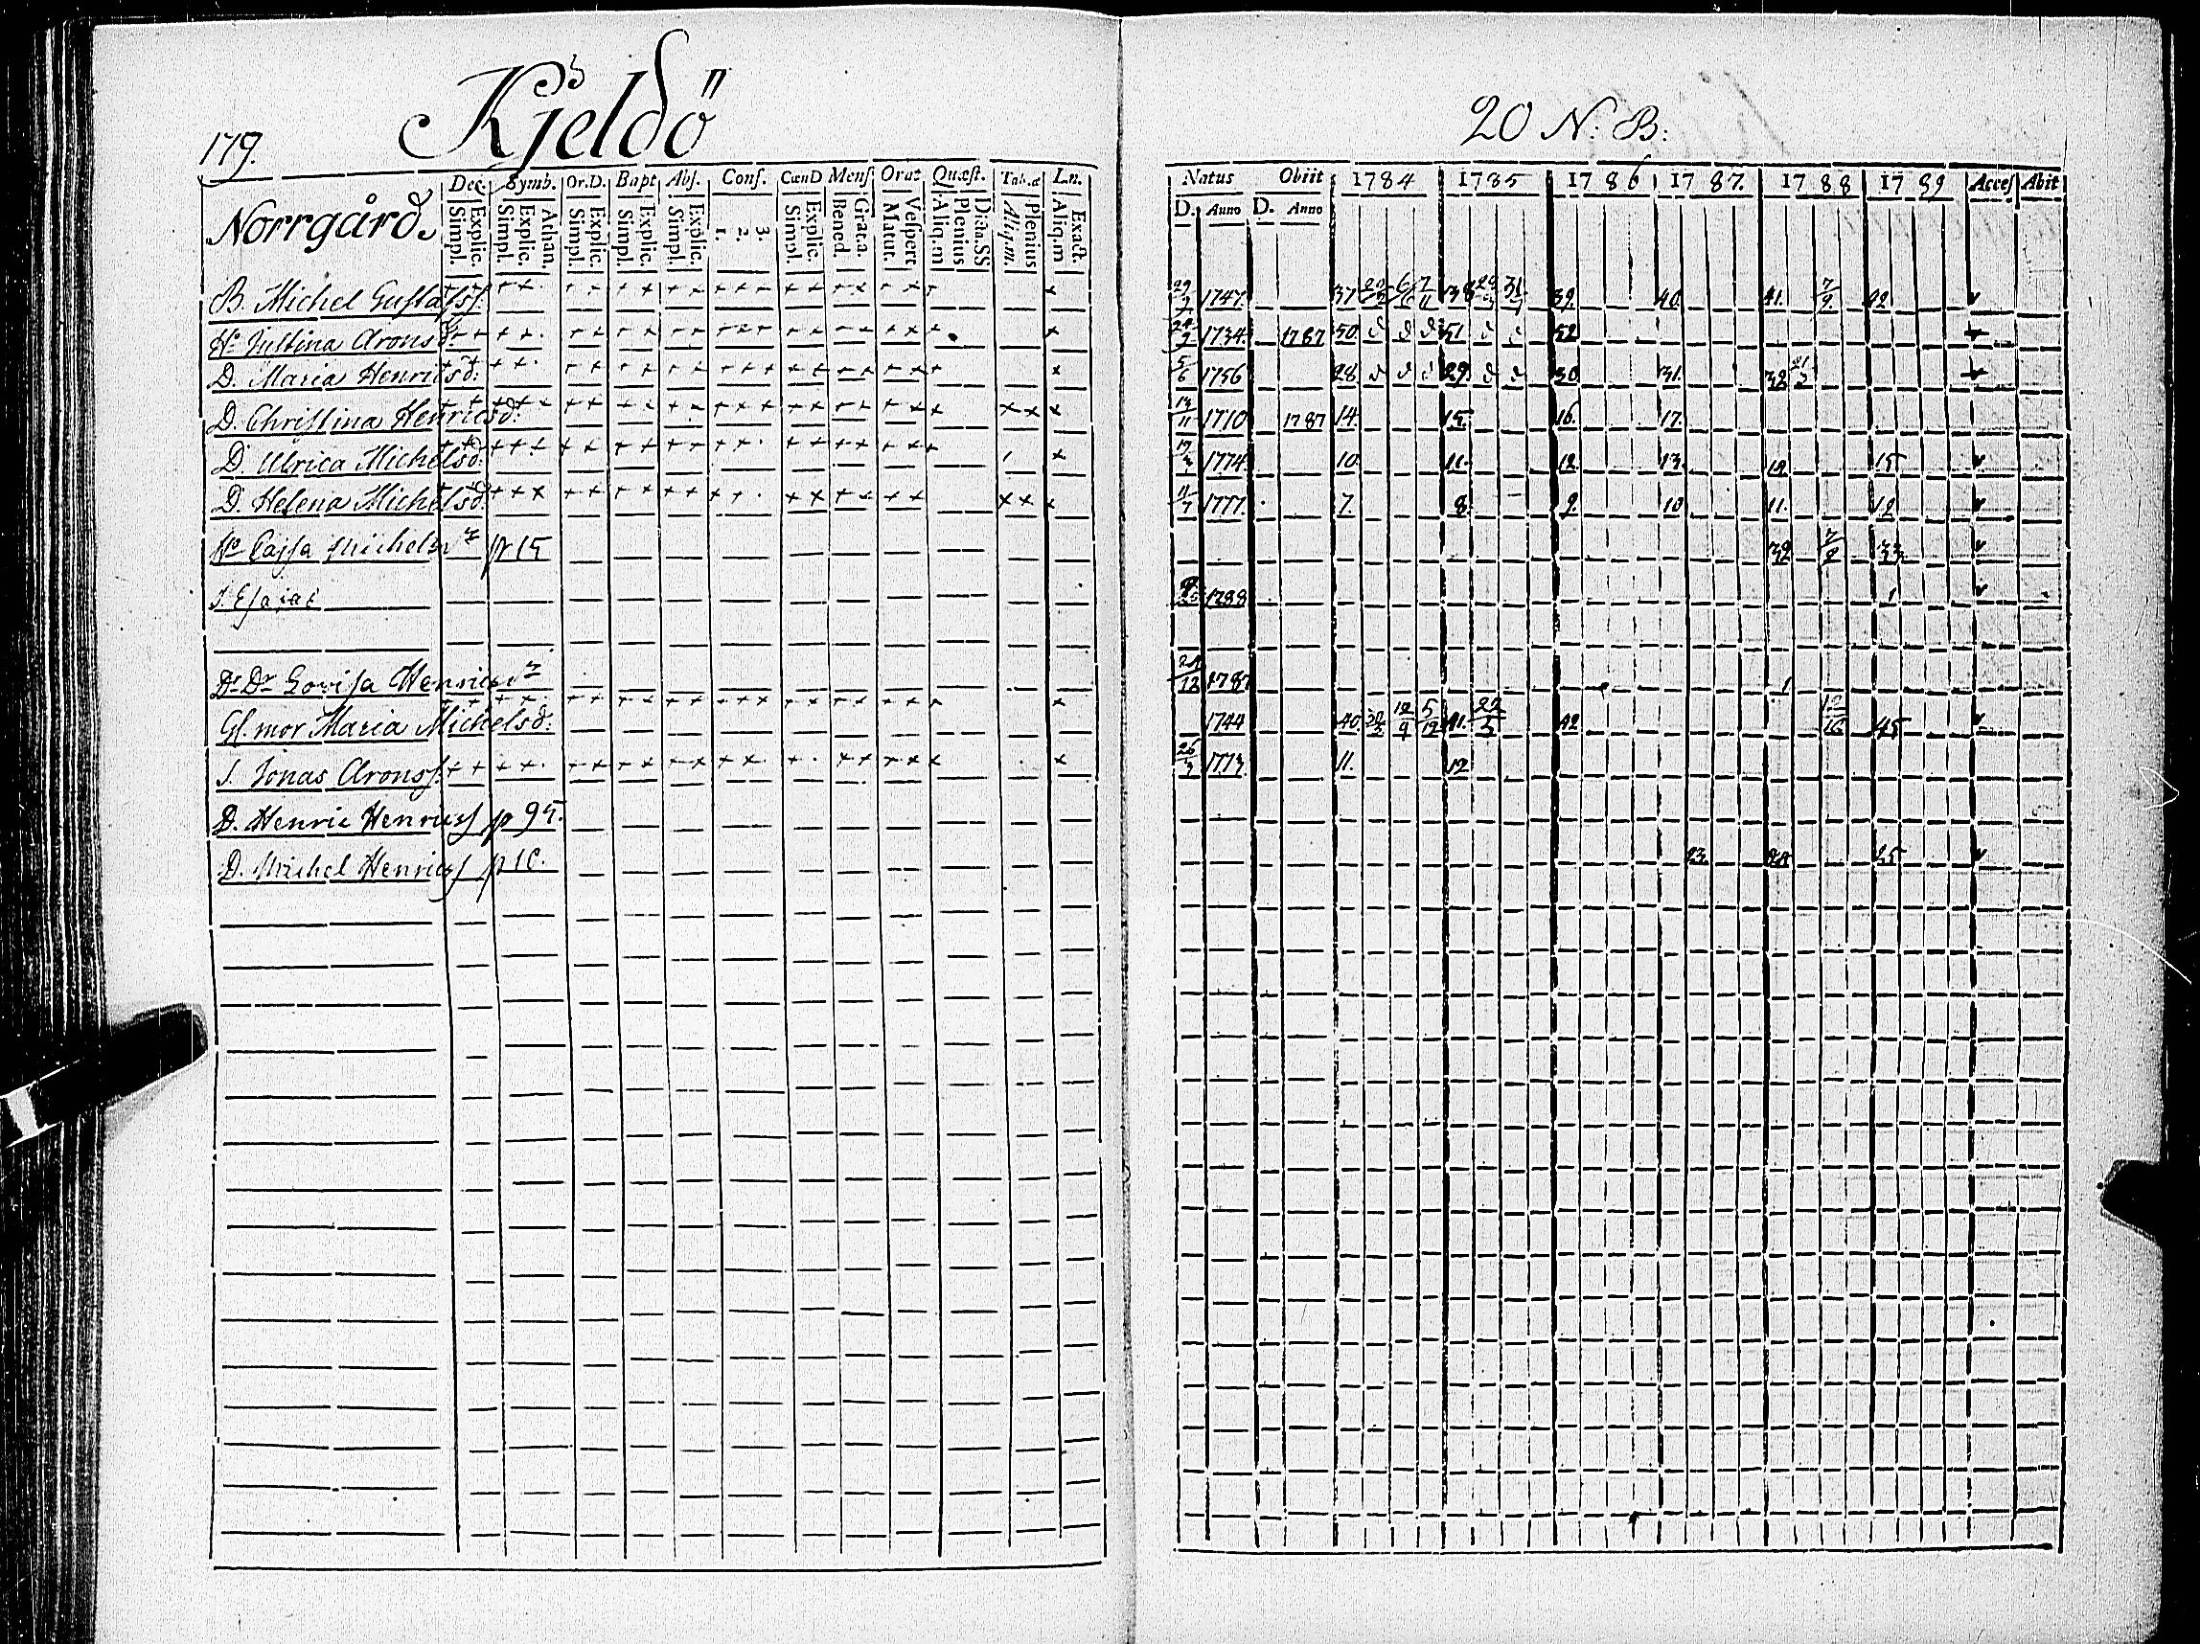 179.
Kjeldö
20 N: B:
Dec. Symb. Or.D. Bapt Abs. Conf. CœnD Mens Orat Quæst. Tab.æ Ln.
Natus Obiit 1784 1785 1786 1787. 1788 1789 Acces Abit
Norrgård. Simpl. Explic. Simpl. Explic. Athan. Simpl. Explic. Simpl. Explic. Simpl. Explic. 1. 2. 3. Simpl. Explic. Bened. Grat.a. Matut. Vespert Aliq.m Plenius Dicta.SS Aliq.m. Plenius Aliq.m Exact.
D. Anno D. Anno
B. Michel Gustafss. 29/9 1747. 37 38 39. 40. 41. 7/9. 42
H: Justina Aronsd: 1734. 1787 50. 51 52
D. Maria Henricsd: 5/6 1756 28. 29. 30. 31. 32
D. Christina Henricsd: 13/11 1710 1787 14. 15. 16. 17.
D. Ulrica Michelsd: 1774 10. 11. 12. 13. 15
D. Helena Michelsd: 1777. 7. 8. 9. 10 11. 12
H: Cajsa Michelsr p 15 32 33
S. Esaias 1788 1
Dr Dr Lovisa Henricsr 1787 1
Gl. mor Maria Michelsd: 1744 40. 12/9 5/12 41. 22/5 42 45
S. Jonas Aronss. 26/3 1773. 11. 12
D. Henric Henricss p 95.
D. Michel Henricss p 10. 23. 24 25